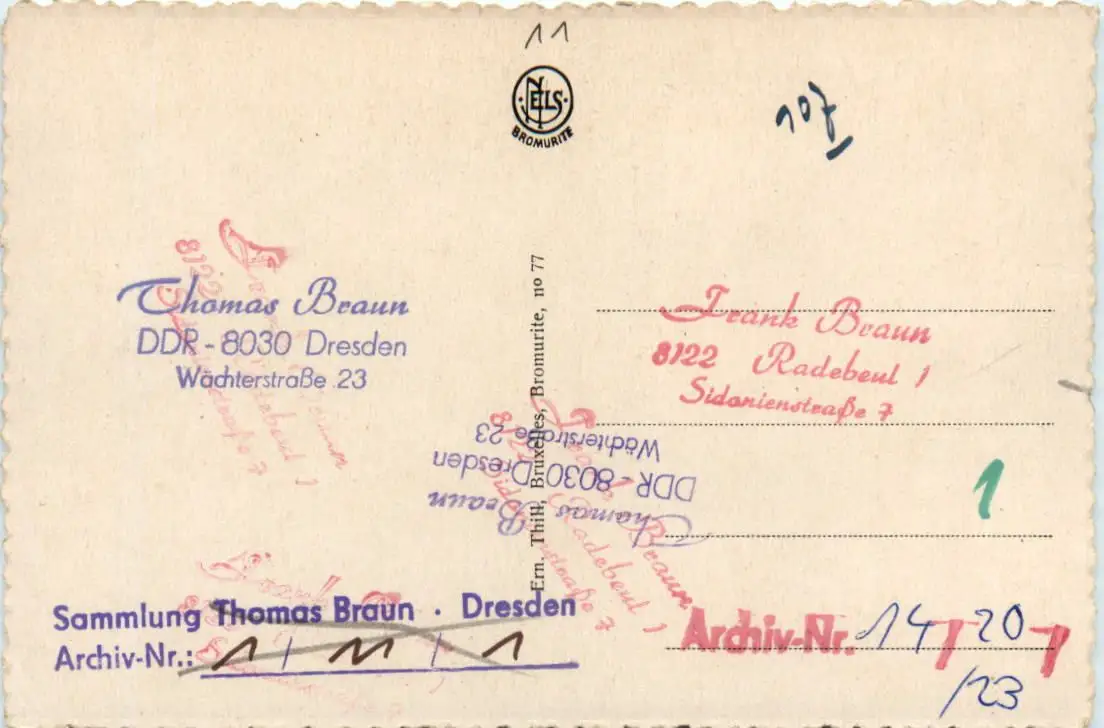 11
NELS
BROMURITE
107
Thomas Braun
DDR - 8030 Dresden
Wächterstraße 23
Frank Braun
8122 Radebeul 1
Sidonienstraße 7
Ern. Thill, Bruxelles, Bromurite, no 77
Thomas Braun
DDR - 8030 Dresden
Wächterstraße 23
Frank Braun
8122 Radebeul 1
Sidonienstraße 7
1
Sammlung Thomas Braun · Dresden
Archiv-Nr.: 1 / 11 / 1
Archiv-Nr. 14 / 20 /
/23